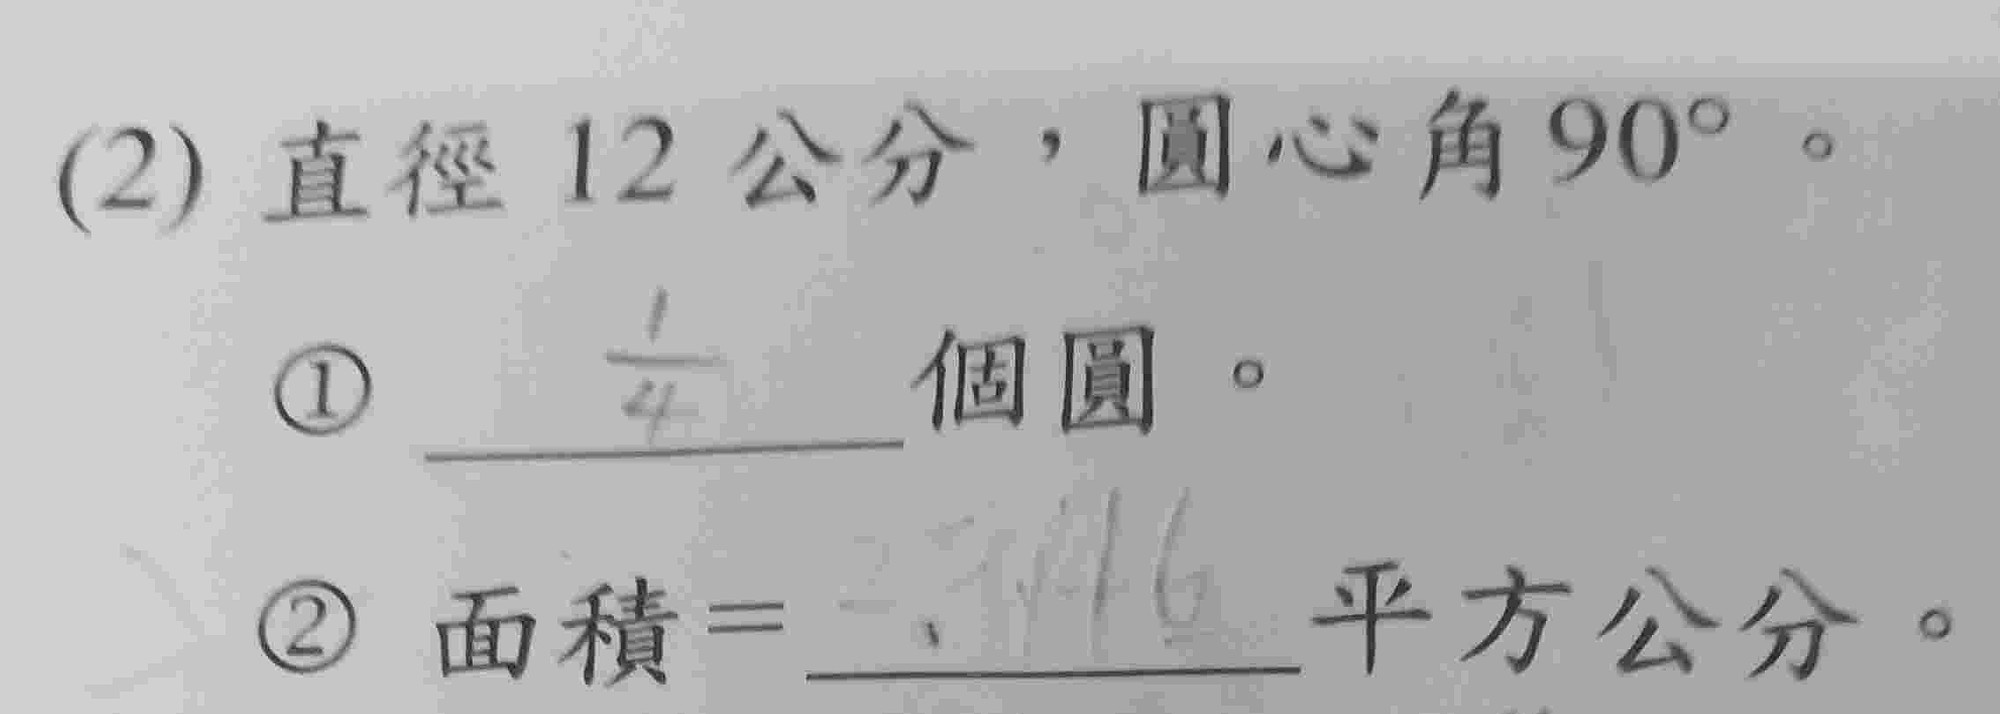 (2) 直徑 12 公分，圓心角 90°。
① 1/4 個圓。
② 面積= 平方公分。